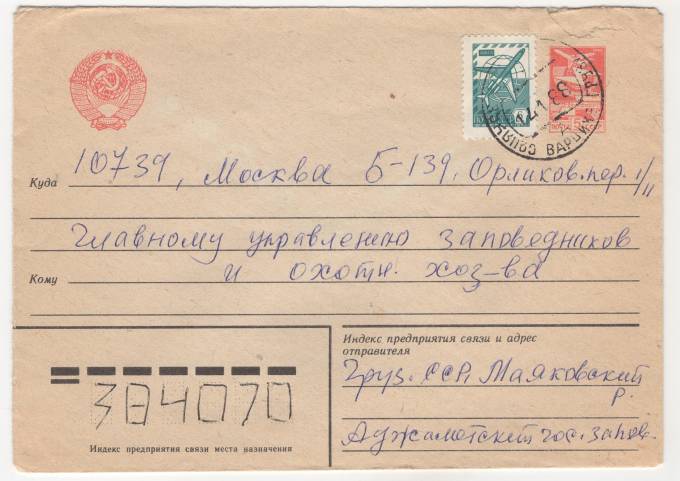 10739, Москва Б-139, Орликов. пер. 1/11
Куда
Главному управлению заповедников
и охотн. хоз-ва
Кому
Индекс предприятия связи и адрес
отправителя
Груз. ССР, Маяковский
р.
Аджаметский гос. запов.
384070
Индекс предприятия связи места назначения